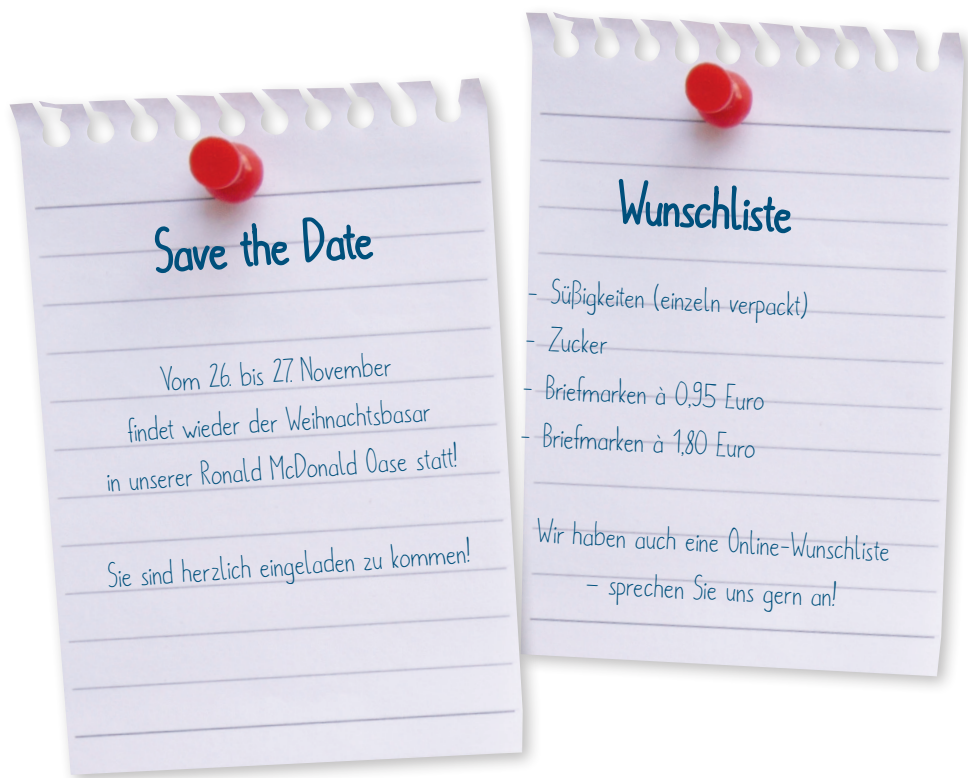 Save the Date
Vom 26. bis 27. November
findet wieder der Weihnachtsbasar
in unserer Ronald McDonald Oase statt!
Sie sind herzlich eingeladen zu kommen!
Wunschliste
- Süßigkeiten (einzeln verpackt)
- Zucker
- Briefmarken à 0,95 Euro
- Briefmarken à 1,80 Euro
Wir haben auch eine Online-Wunschliste
– sprechen Sie uns gern an!